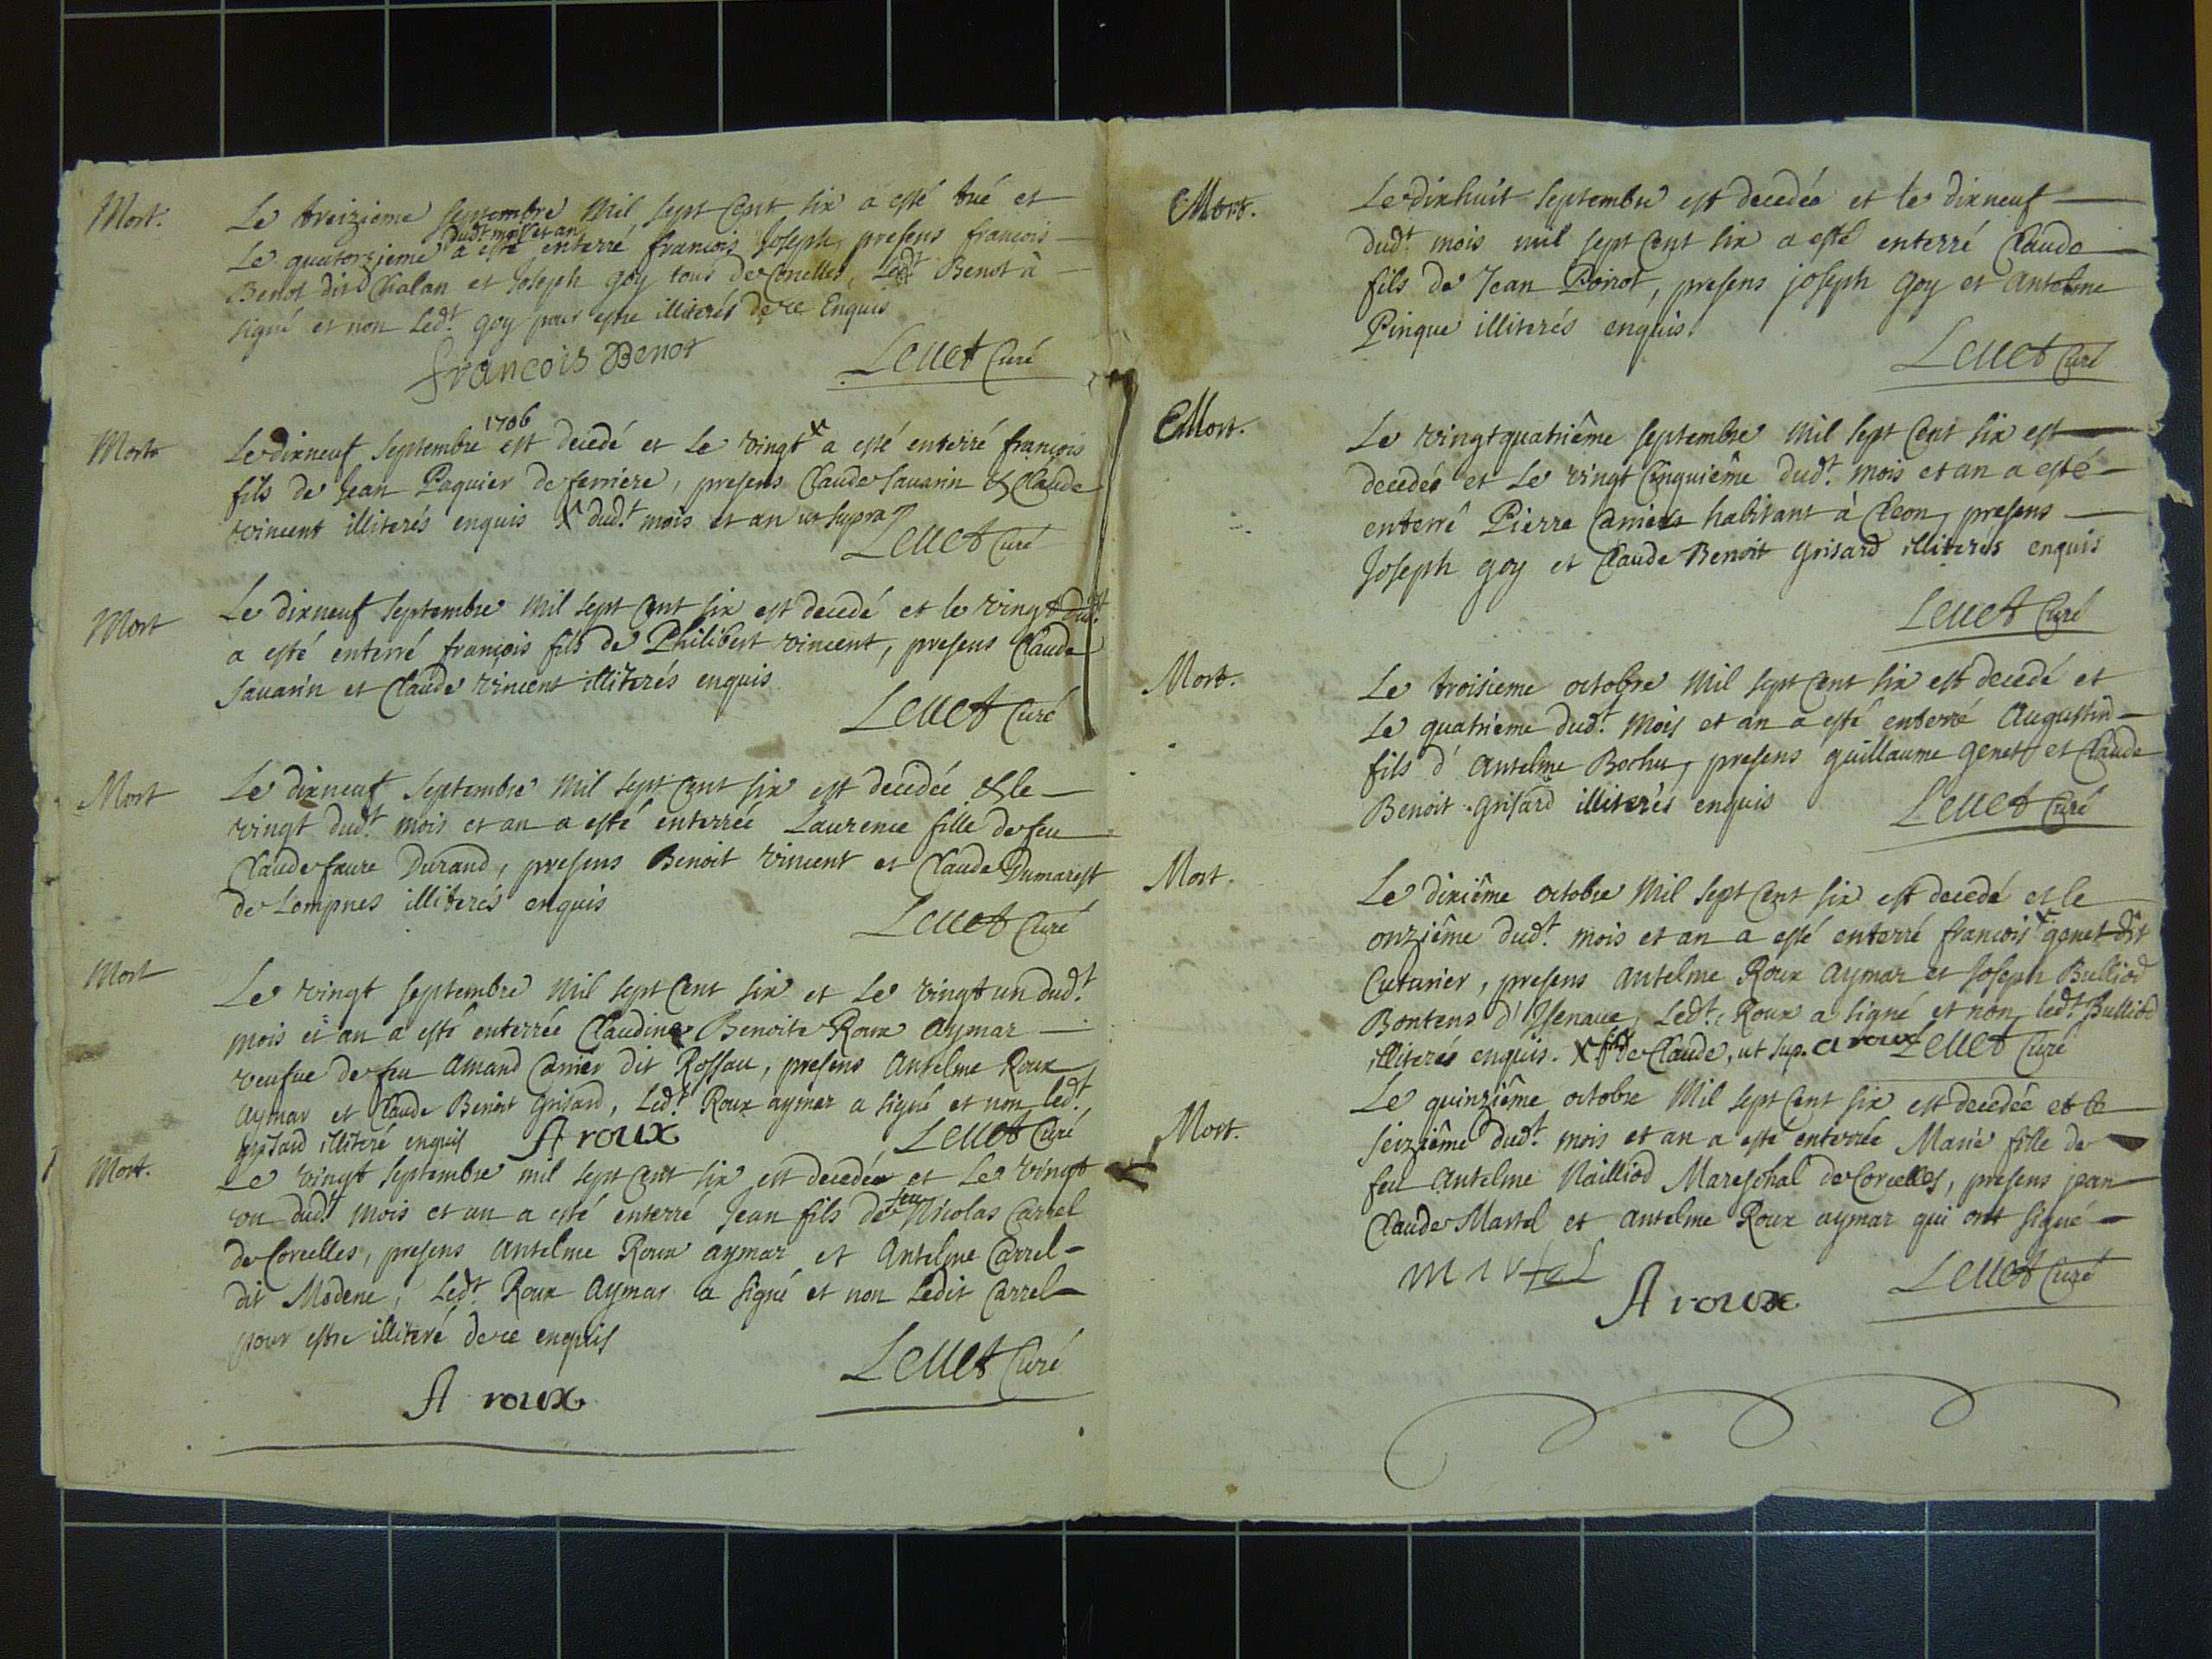 Mort.
Le treizieme septembre Mil sept Cent six a esté tué et
dudt mois et an
Le quatorzieme a esté enterré francois Joseph, presens françois
Benot dit Chalan et Joseph goy tous de Corcelles, Ledt. Benot à
signé et non Ledt. goy pour estre illiterés de ce Enquis
francois Benot
Leuet Curé
Mort
1706
Le dixneuf septembre est decedé et Le vingt x a esté enterré françois
fils de Jean Paquier de ferriere, presens Claude Sauarin & Claude
vincent illiterés enquis X dudt. mois et an ut supra
Leuet Curé
Mort
Le dixneuf septembre Mil sept Cent six est decedé et le vingt dudt.
a esté enterré françois fils de Philibert vincent, presens Claude
Sauarin et Claude vincent illiterés enquis
Leuet Curé
Mort
Le dixneuf septembre Mil sept Cent six est decedée & le
vingt dudt. mois et an a esté enterrée Laurence fille de feu
Claude faure Durand, presens Benoit vincent et Claude Dumarest
de Lompnes illiterés enquis
Leuet Curé
Mort
Le vingt septembre Mil sept Cent six et Le vingt un dudt.
mois et an a esté enterrée Claudine Benoite Roux Aymar
veufue de feu Amand Carrier dit Rossau, presens Antelme Roux
Aymar et Claude Benoit Grisard, Ledt. Roux aymar a signé et non ledt.
Grisard illiteré enquis
A roux
Leuet Curé
Mort.
Le vingt septembre mil sept Cent six est decedé et Le vingt
feu
un dudt. mois et an a esté enterré Jean fils de Nicolas Carrel
de Corcelles, presens Antelme Roux aymar et Antelme Carrel
dit Modene, Ledt. Roux Aymar a signé et non Ledit Carrel
pour estre illiteré de ce enquis
Leuet Curé
A roux
Mort.
Le dixhuit septembre est decedée et le dixneuf
dudt. mois mil sept Cent six a esté enterré Claude
fils de Jean Poirot, presens joseph Goy et Antelme
Pinque illiterés enquis.
Leuet Curé
Mort.
Le vingtquatriême septembre Mil sept Cent six est
decedés et Le vingt Cinquiême dudt. mois et an a esté
enterré Pierre Carriers habitant à Cleon, presens
Joseph goy et Claude Benoit Grisard illiterés enquis
Leuet Curé
Mort.
Le troisieme octobre Mil sept Cent six est decedé et
Le quatrieme dudt. Mois et an a esté enterré Augustin
fils d'Antelme Bochu, presens guillaume genet et Claude
Benoit Grisard illiterés enquis
Leuet Curé
Mort.
Le dixiême octobre Mil sept Cent six est decedé et le
onziême dudt. mois et an a esté enterré francois x genet dit
Cuturier, presens Antelme Roux Aymar et Joseph Bulliod
Bontens d'Izenaue, Ledt. Roux a signé et non ledt. Bulliod
illiterés enquis. X fils de Claude, ut sup. A roux Leuet Curé
Mort.
Le quinziême octobre Mil sept Cent six est decedée et le
seiziême dudt. mois et an a esté enterrée Marie fille de
feu Antelme Nailliod Mareschal de Corcelles, presens jean
Claude Martel et Antelme Roux aymar qui ont signé
martel
A roux
Leuet Curé